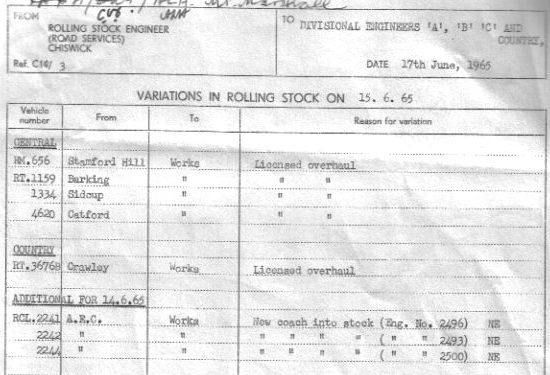 Mr. Marshall
FROM
ROLLING STOCK ENGINEER
(ROAD SERVICES)
CHISWICK
Ref. C10/ 3
TO DIVISIONAL ENGINEERS 'A', 'B' 'C' AND
COUNTRY,
DATE 17th June, 1965
VARIATIONS IN ROLLING STOCK ON 15. 6. 65
Vehicle number From To Reason for variation
CENTRAL
RM.656 Stamford Hill Works Licensed overhaul
RT.1159 Barking " " "
1334 Sidcup " " "
4620 Catford " " "
COUNTRY
RT.3676B Crawley Works Licensed overhaul
ADDITIONAL FOR 14.6.65
RCL.2241 A.E.C. Works New coach into stock (Eng. No. 2496) NE
2242 " " " " " " ( " " 2493) NE
2244 " " " " " " ( " " 2500) NE